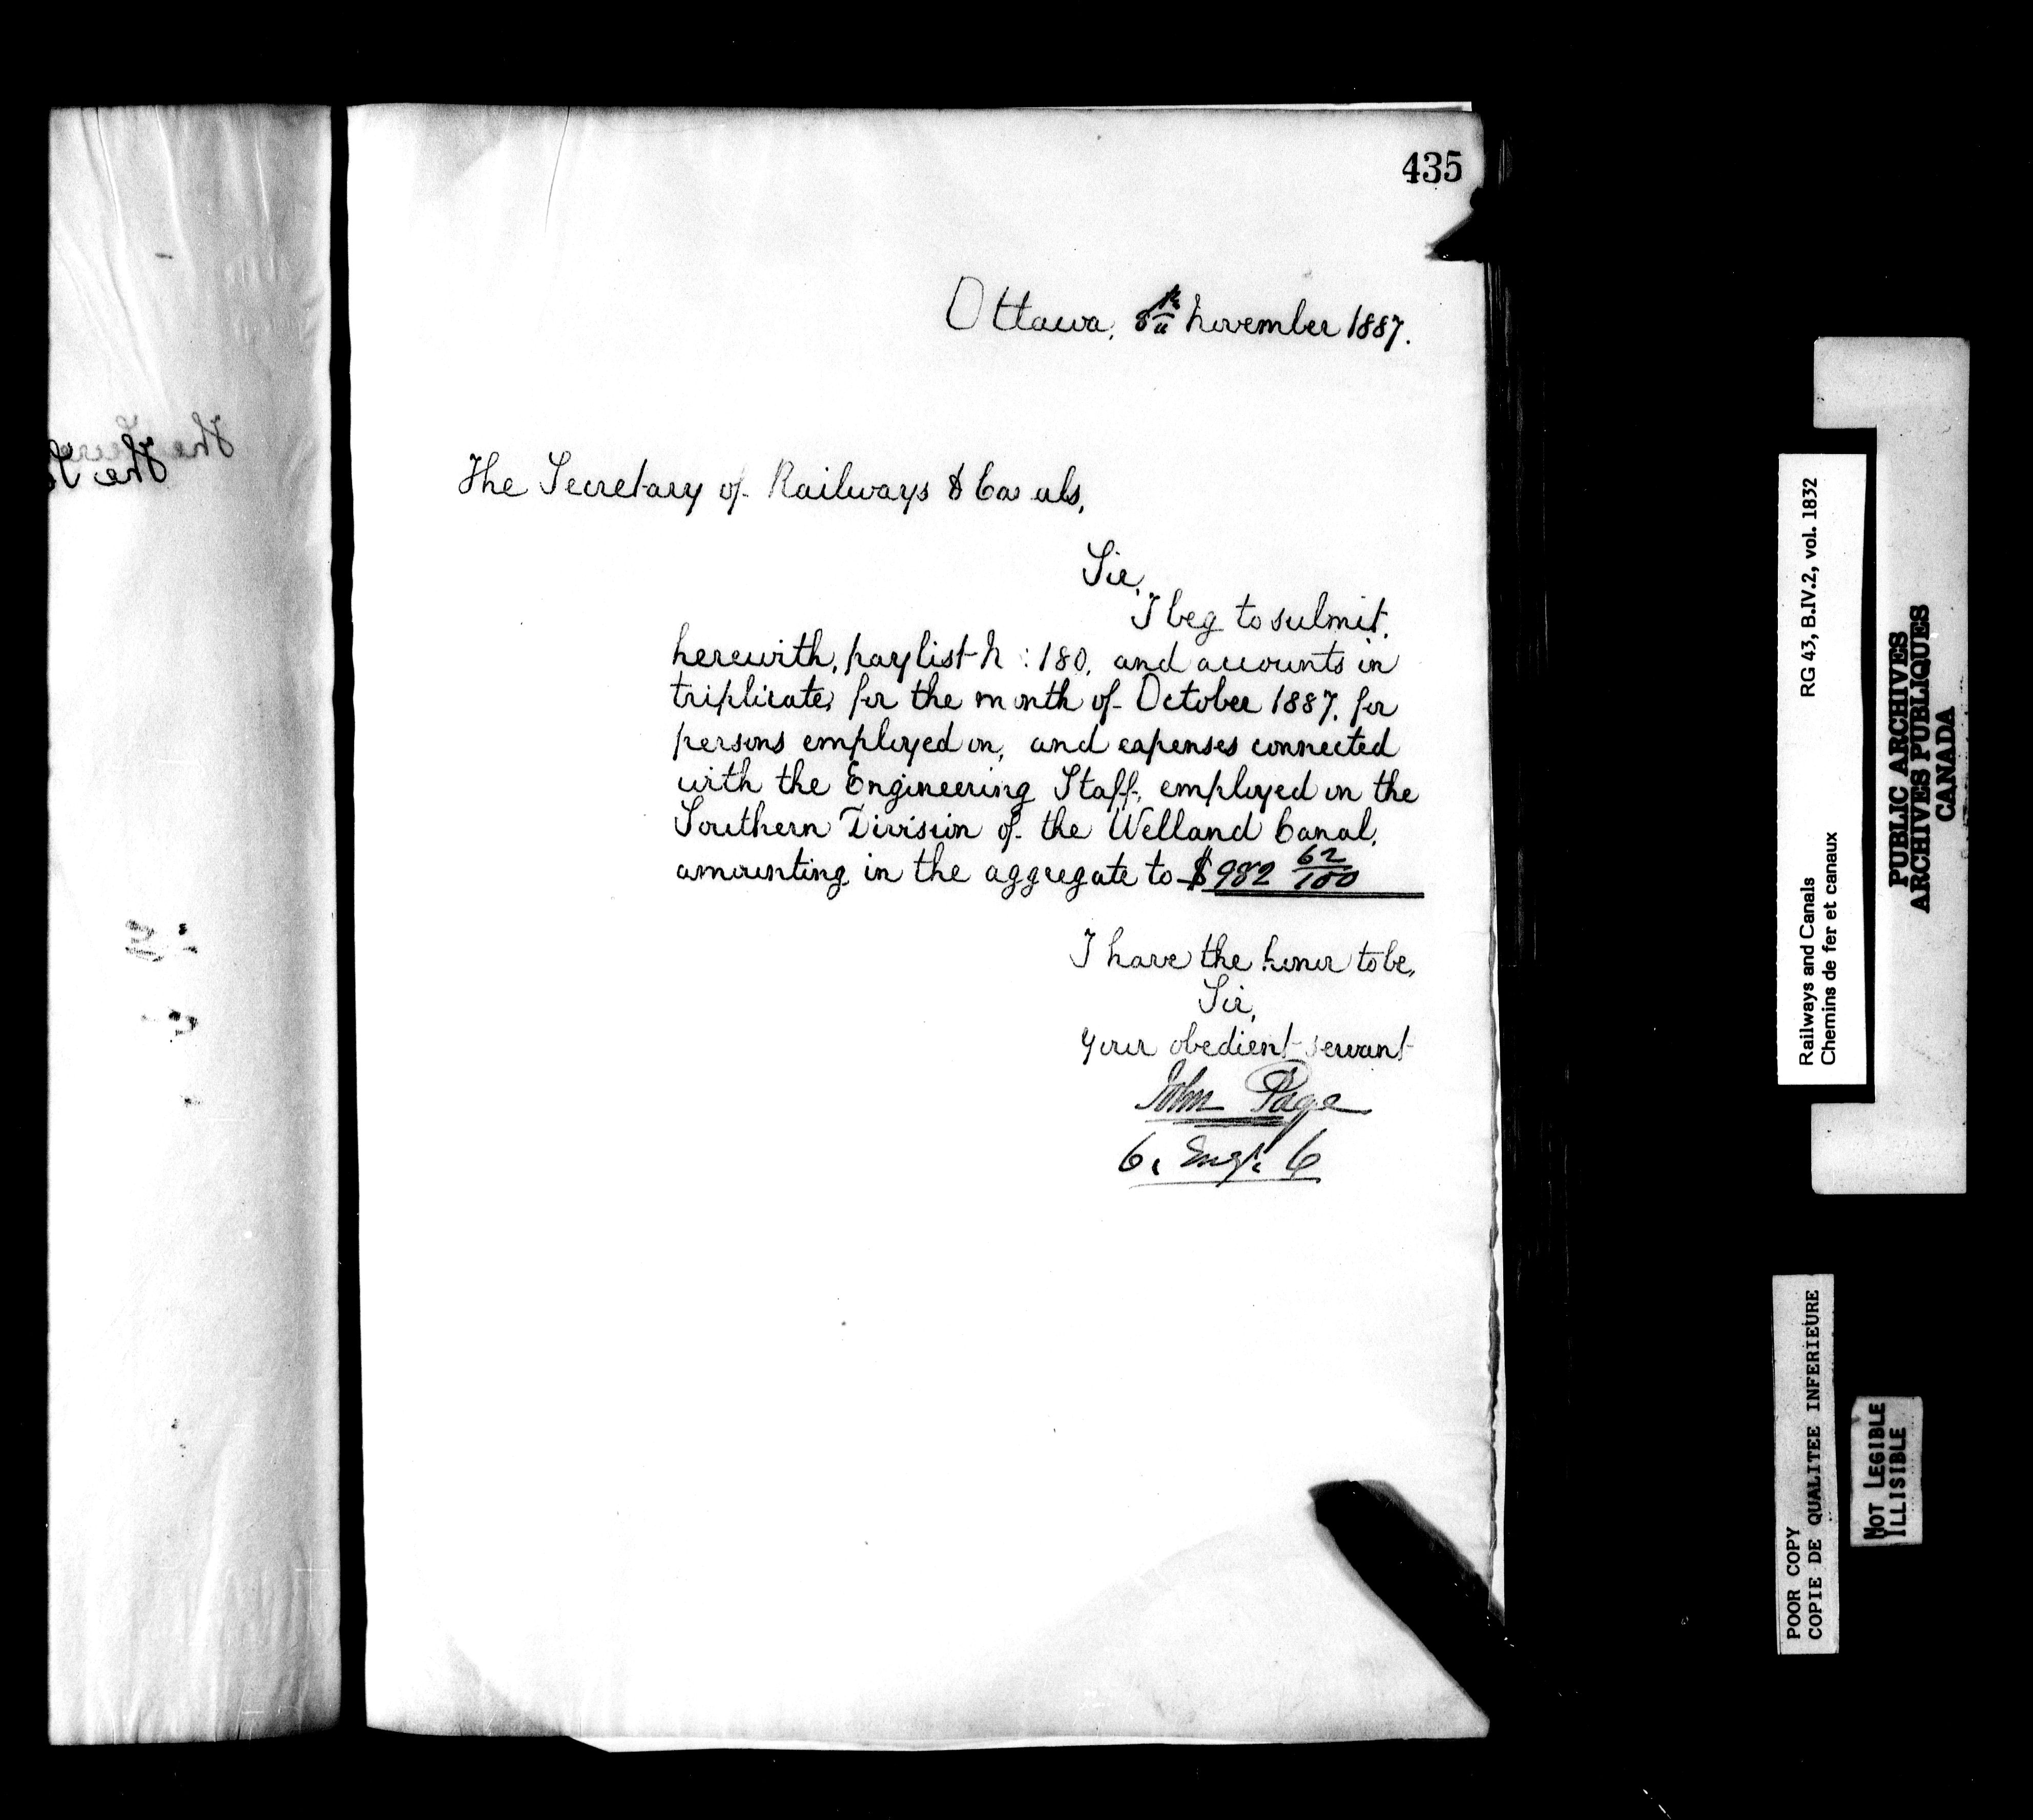 435
Ottawa, 8th November 1887.
The Secretary of Railways & Canals,
Sir,
I beg to submit,
herewith, paylist No: 180, and accounts in
triplicate, for the month of October 1887, for
persons employed on, and expenses connected
with the Engineering Staff, employed on the
Southern Division of the Welland Canal,
amounting in the aggregate to $982 62/100
I have the honor to be,
Sir,
your obedient servant
John Page
C. Engr. C
The
The
Railways and Canals RG 43, B.IV.2, vol. 1832
Chemins de fer et canaux
PUBLIC ARCHIVES
ARCHIVES PUBLIQUES
CANADA
POOR COPY
COPIE DE QUALITEE INFERIEURE
NOT LEGIBLE
ILLISIBLE